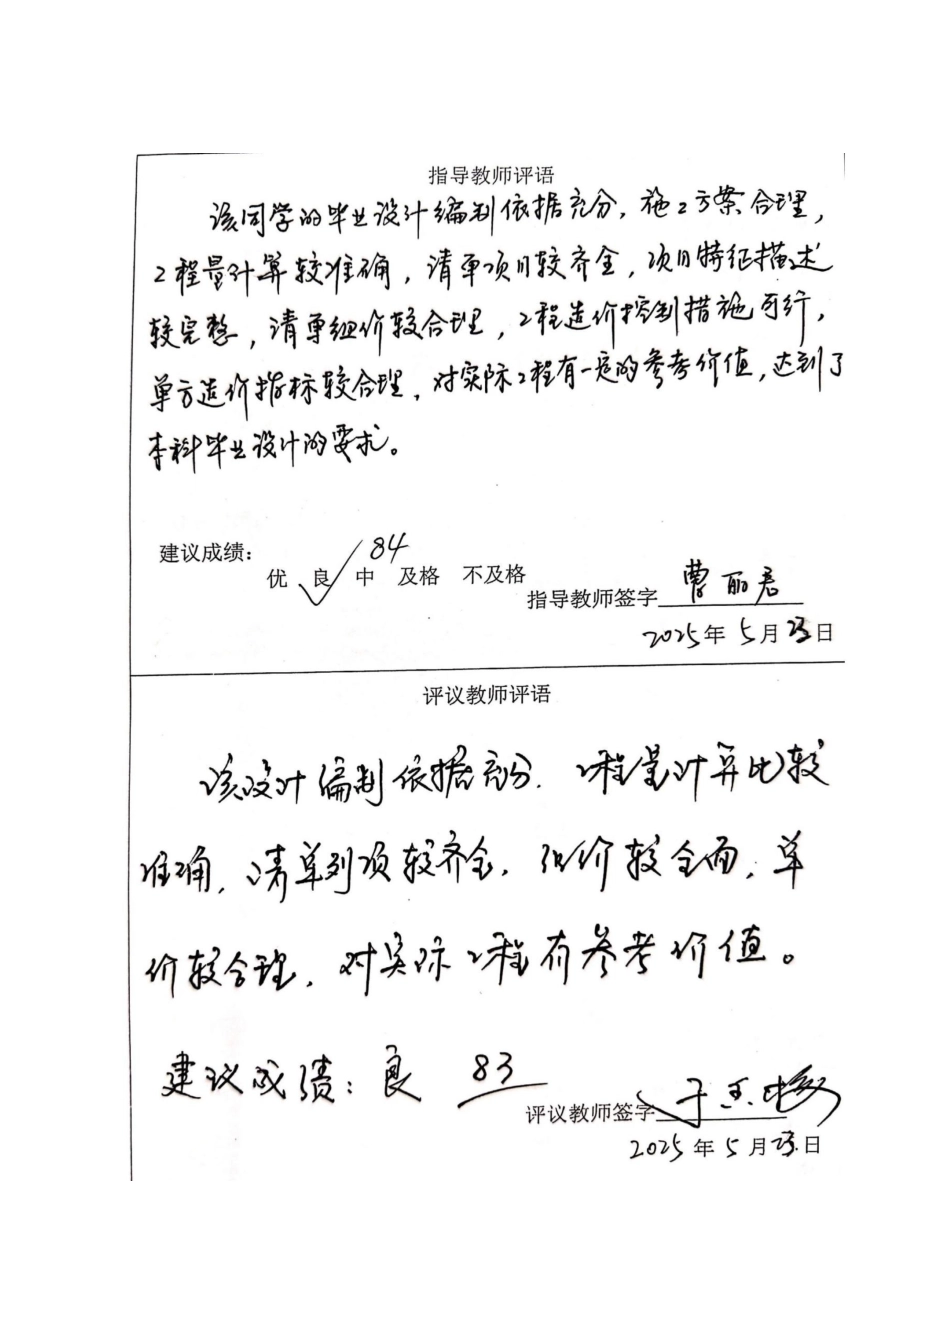 指导教师评语
该同学的毕业设计编制依据充分，施工方案合理，
工程量计算较准确，清单项目较齐全，项目特征描述
较完整，清单组价较合理，工程造价控制措施可行，
单方造价指标较合理，对实际工程有一定的参考价值，达到了
本科毕业设计的要求。
建议成绩： 84
优 良 中 及格 不及格
指导教师签字 曹丽君
2025年5月 日
评议教师评语
该设计编制依据充分.工程量计算比较
准确，清单列项较齐全，组价较全面，单
价较合理，对实际工程有参考价值。
建议成绩：良 83
评议教师签字
2025年5月 日